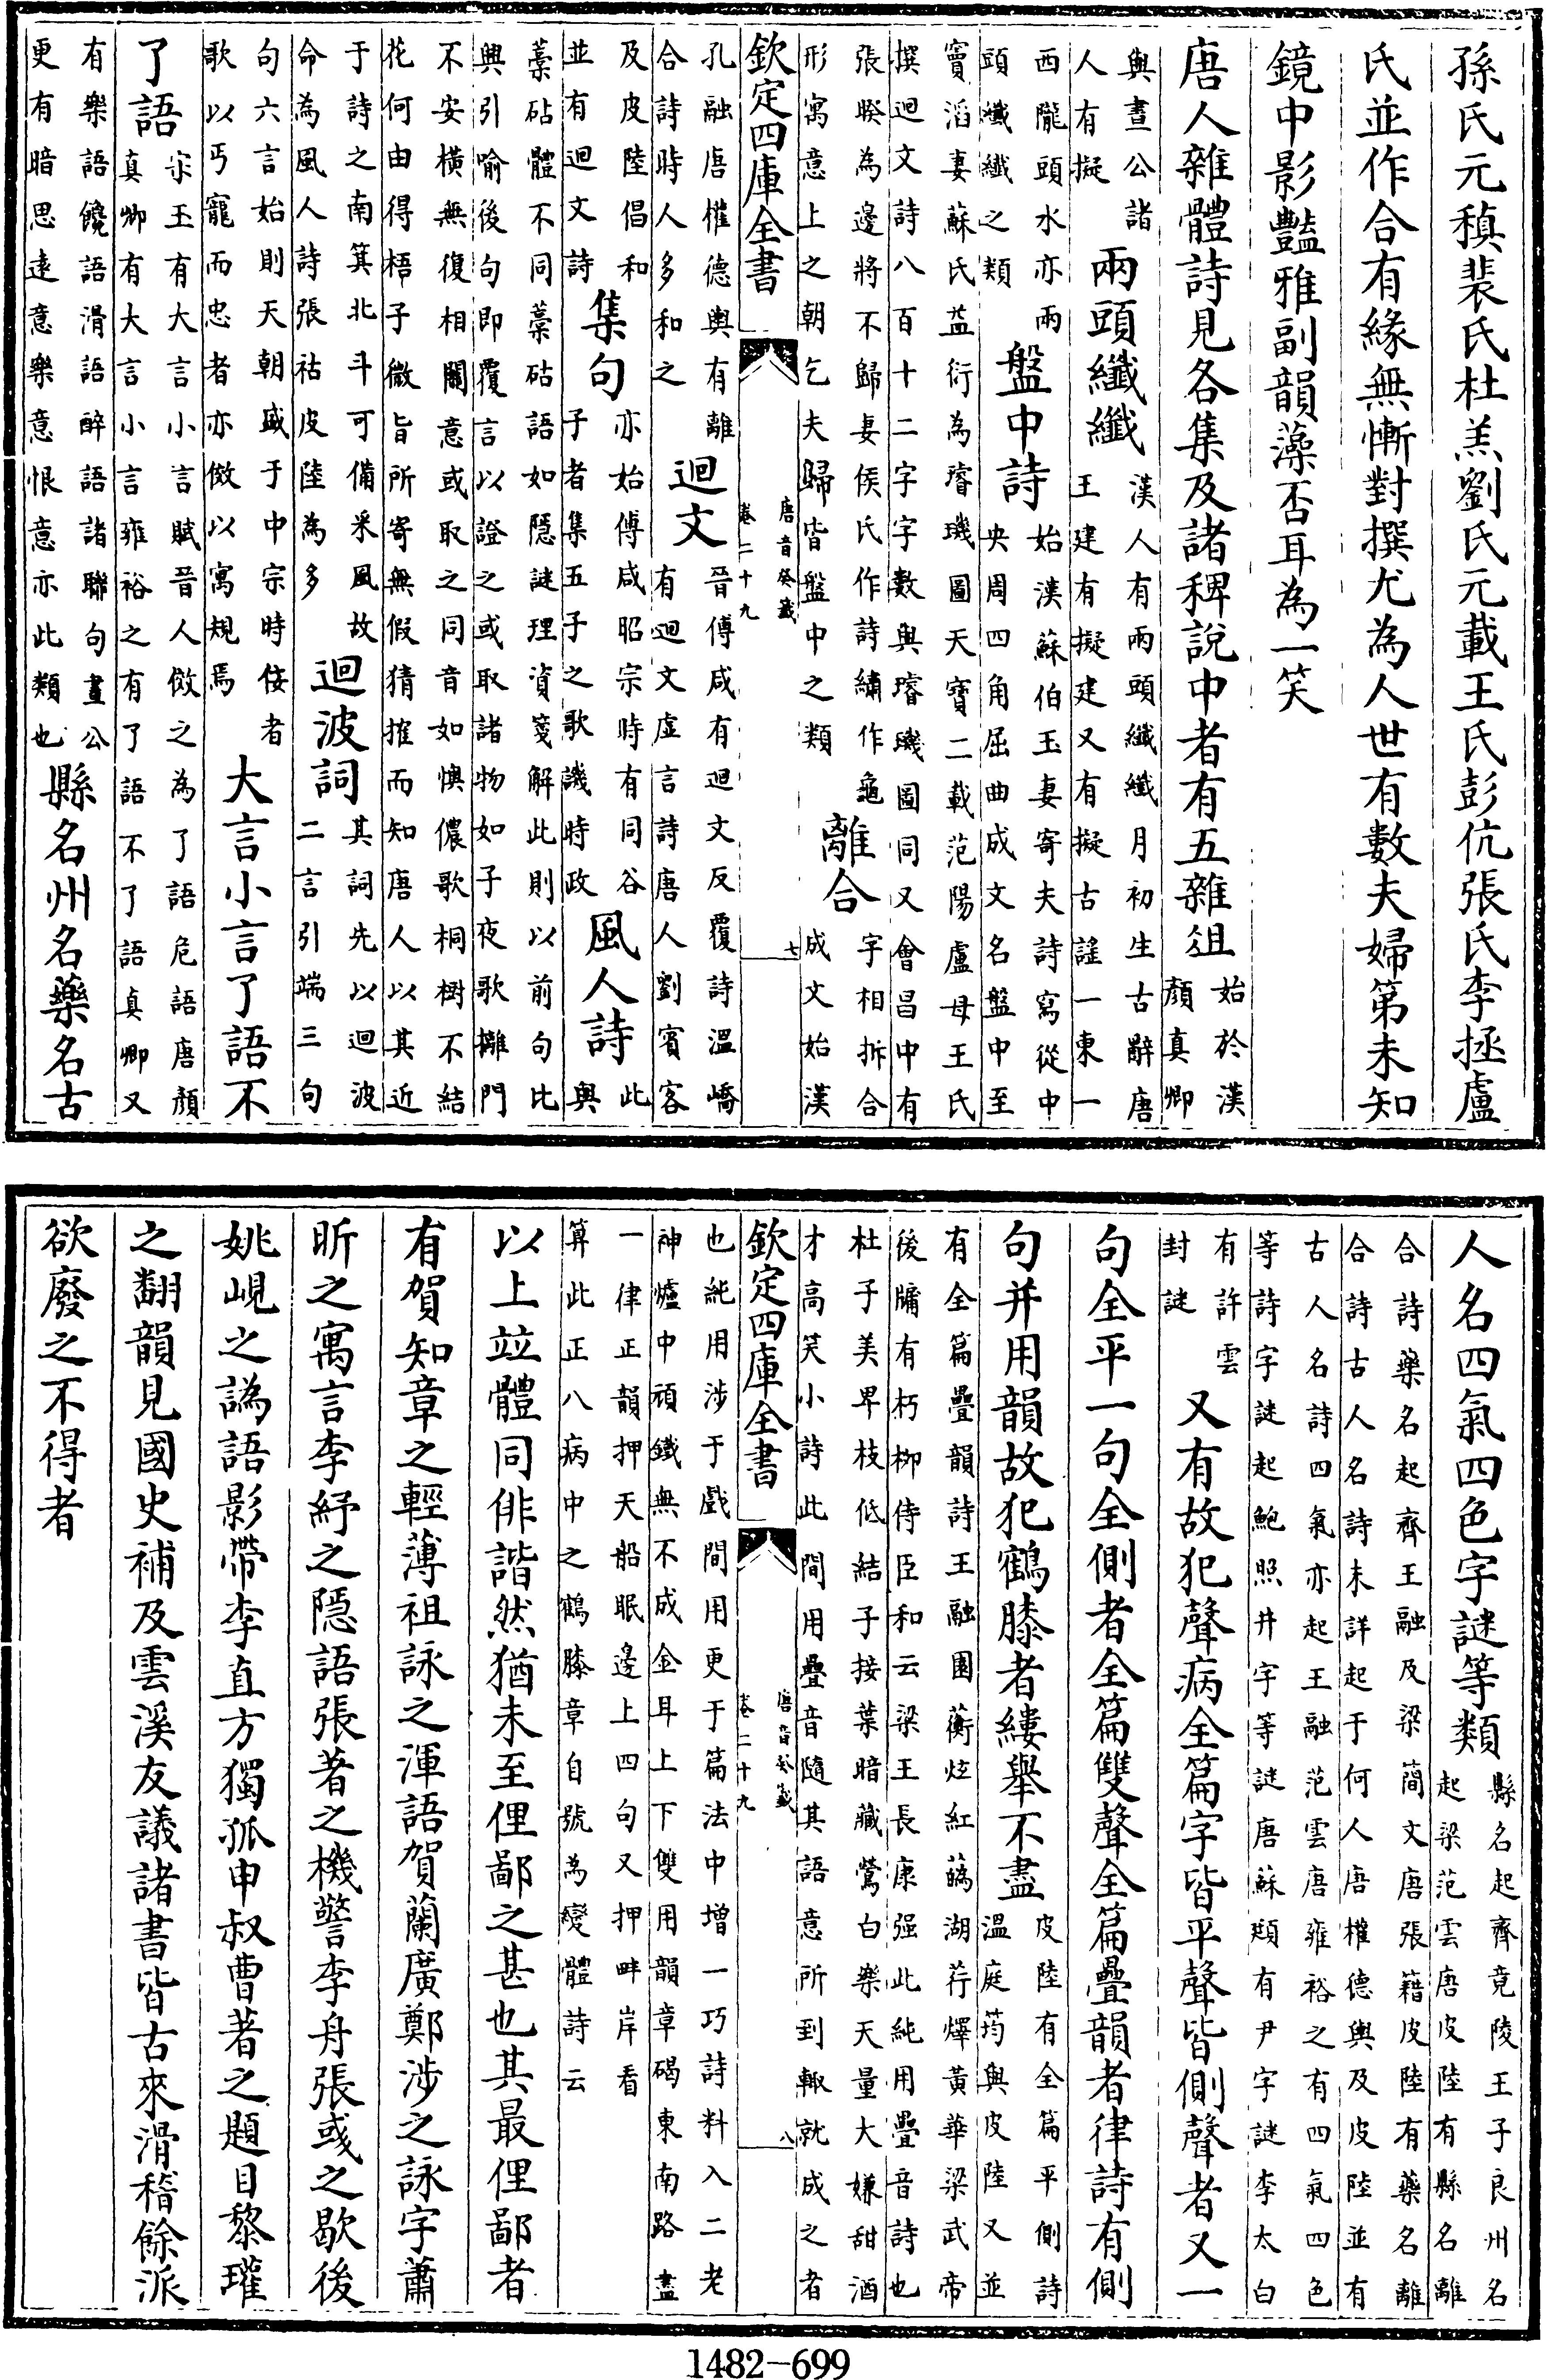 孫氏元稹裴氏杜羔劉氏元載王氏彭伉張氏李拯盧
氏並作合有緣無慚對撰尤為人世有數夫婦第未知
鏡中影豔雅副韻藻否耳為一笑
唐人雜體詩見各集及諸稗說中者有五雜俎始於漢顏真卿
與晝公諸人有擬兩頭纖纖漢人有兩頭纖纖月初生古辭唐王建有擬建又有擬古謠一東一
西隴頭水亦兩頭纖纖之類盤中詩始漢蘇伯玉妻寄夫詩寫從中央周四角屈曲成文名盤中至
竇滔妻蘇氏益衍為璿璣圖天寶二載范陽盧母王氏撰迴文詩八百十二字字數與璿璣圖同又會昌中有
張睽為邊將不歸妻侯氏作詩繡作龜形寓意上之朝乞夫歸皆盤中之類離合字相拆合成文始漢
欽定四庫全書 唐音癸籤 卷二十九 七
孔融唐權德輿有離合詩時人多和之迴文晉傅咸有迴文反覆詩溫嶠有迴文虛言詩唐人劉賓客
及皮陸倡和並有迴文詩集句亦始傅咸昭宗時有同谷子者集五子之歌譏時政風人詩此與
藁砧體不同藁砧語如隱謎理資箋解此則以前句比興引喻後句即覆言以證之或取諸物如子夜歌攡門
不安橫無復相關意或取之同音如懊儂歌桐樹不結花何由得梧子微旨所寄無假猜搉而知唐人以其近
于詩之南箕北斗可備采風故命為風人詩張祜皮陸為多迴波詞其詞先以迴波二言引端三句
句六言始則天朝盛于中宗時佞者歌以丐寵而忠者亦倣以寓規焉大言小言了語不
了語宋玉有大言小言賦晉人倣之為了語危語唐顏真卿有大言小言雍裕之有了語不了語真卿又
有樂語饞語滑語醉語諸聯句晝公更有暗思遠意樂意恨意亦此類也縣名州名藥名古
人名四氣四色字謎等類縣名起齊竟陵王子良州名起梁范雲唐皮陸有縣名離
合詩藥名起齊王融及梁簡文唐張籍皮陸有藥名離合詩古人名詩未詳起于何人唐權德輿及皮陸並有
古人名詩四氣亦起王融范雲唐雍裕之有四氣四色等詩字謎起鮑照井字等謎唐蘇頲有尹字謎李太白
有許雲封謎又有故犯聲病全篇字皆平聲皆側聲者又一
句全平一句全側者全篇雙聲全篇疊韻者律詩有側
句并用韻故犯鶴膝者縷舉不盡皮陸有全篇平側詩溫庭筠與皮陸又並
有全篇疊韻詩王融園蘅炫紅蘤湖荇燡黃華梁武帝後牖有朽柳侍臣和云梁王長康强此純用疊音詩也
杜子美卑枝低結子接葉暗藏鶯白樂天量大嫌甜酒才高笑小詩此間用疊音隨其語意所到輙就成之者
欽定四庫全書 唐音癸籤 卷二十九 八
也純用涉于戲間用更于篇法中增一巧詩料入二老神爐中頑鐵無不成金耳上下雙用韻章碣東南路盡
一律正韻押天船眠邊上四句又押畔岸看算此正八病中之鶴膝章自號為變體詩云
以上竝體同俳諧然猶未至俚鄙之甚也其最俚鄙者
有賀知章之輕薄祖詠之渾語賀蘭廣鄭涉之詠字蕭
昕之寓言李紓之隱語張著之機警李舟張彧之歇後
姚峴之譌語影帶李直方獨孤申叔曹著之題目黎瓘
之翻韻見國史補及雲溪友議諸書皆古來滑稽餘派
欲廢之不得者
1482-699